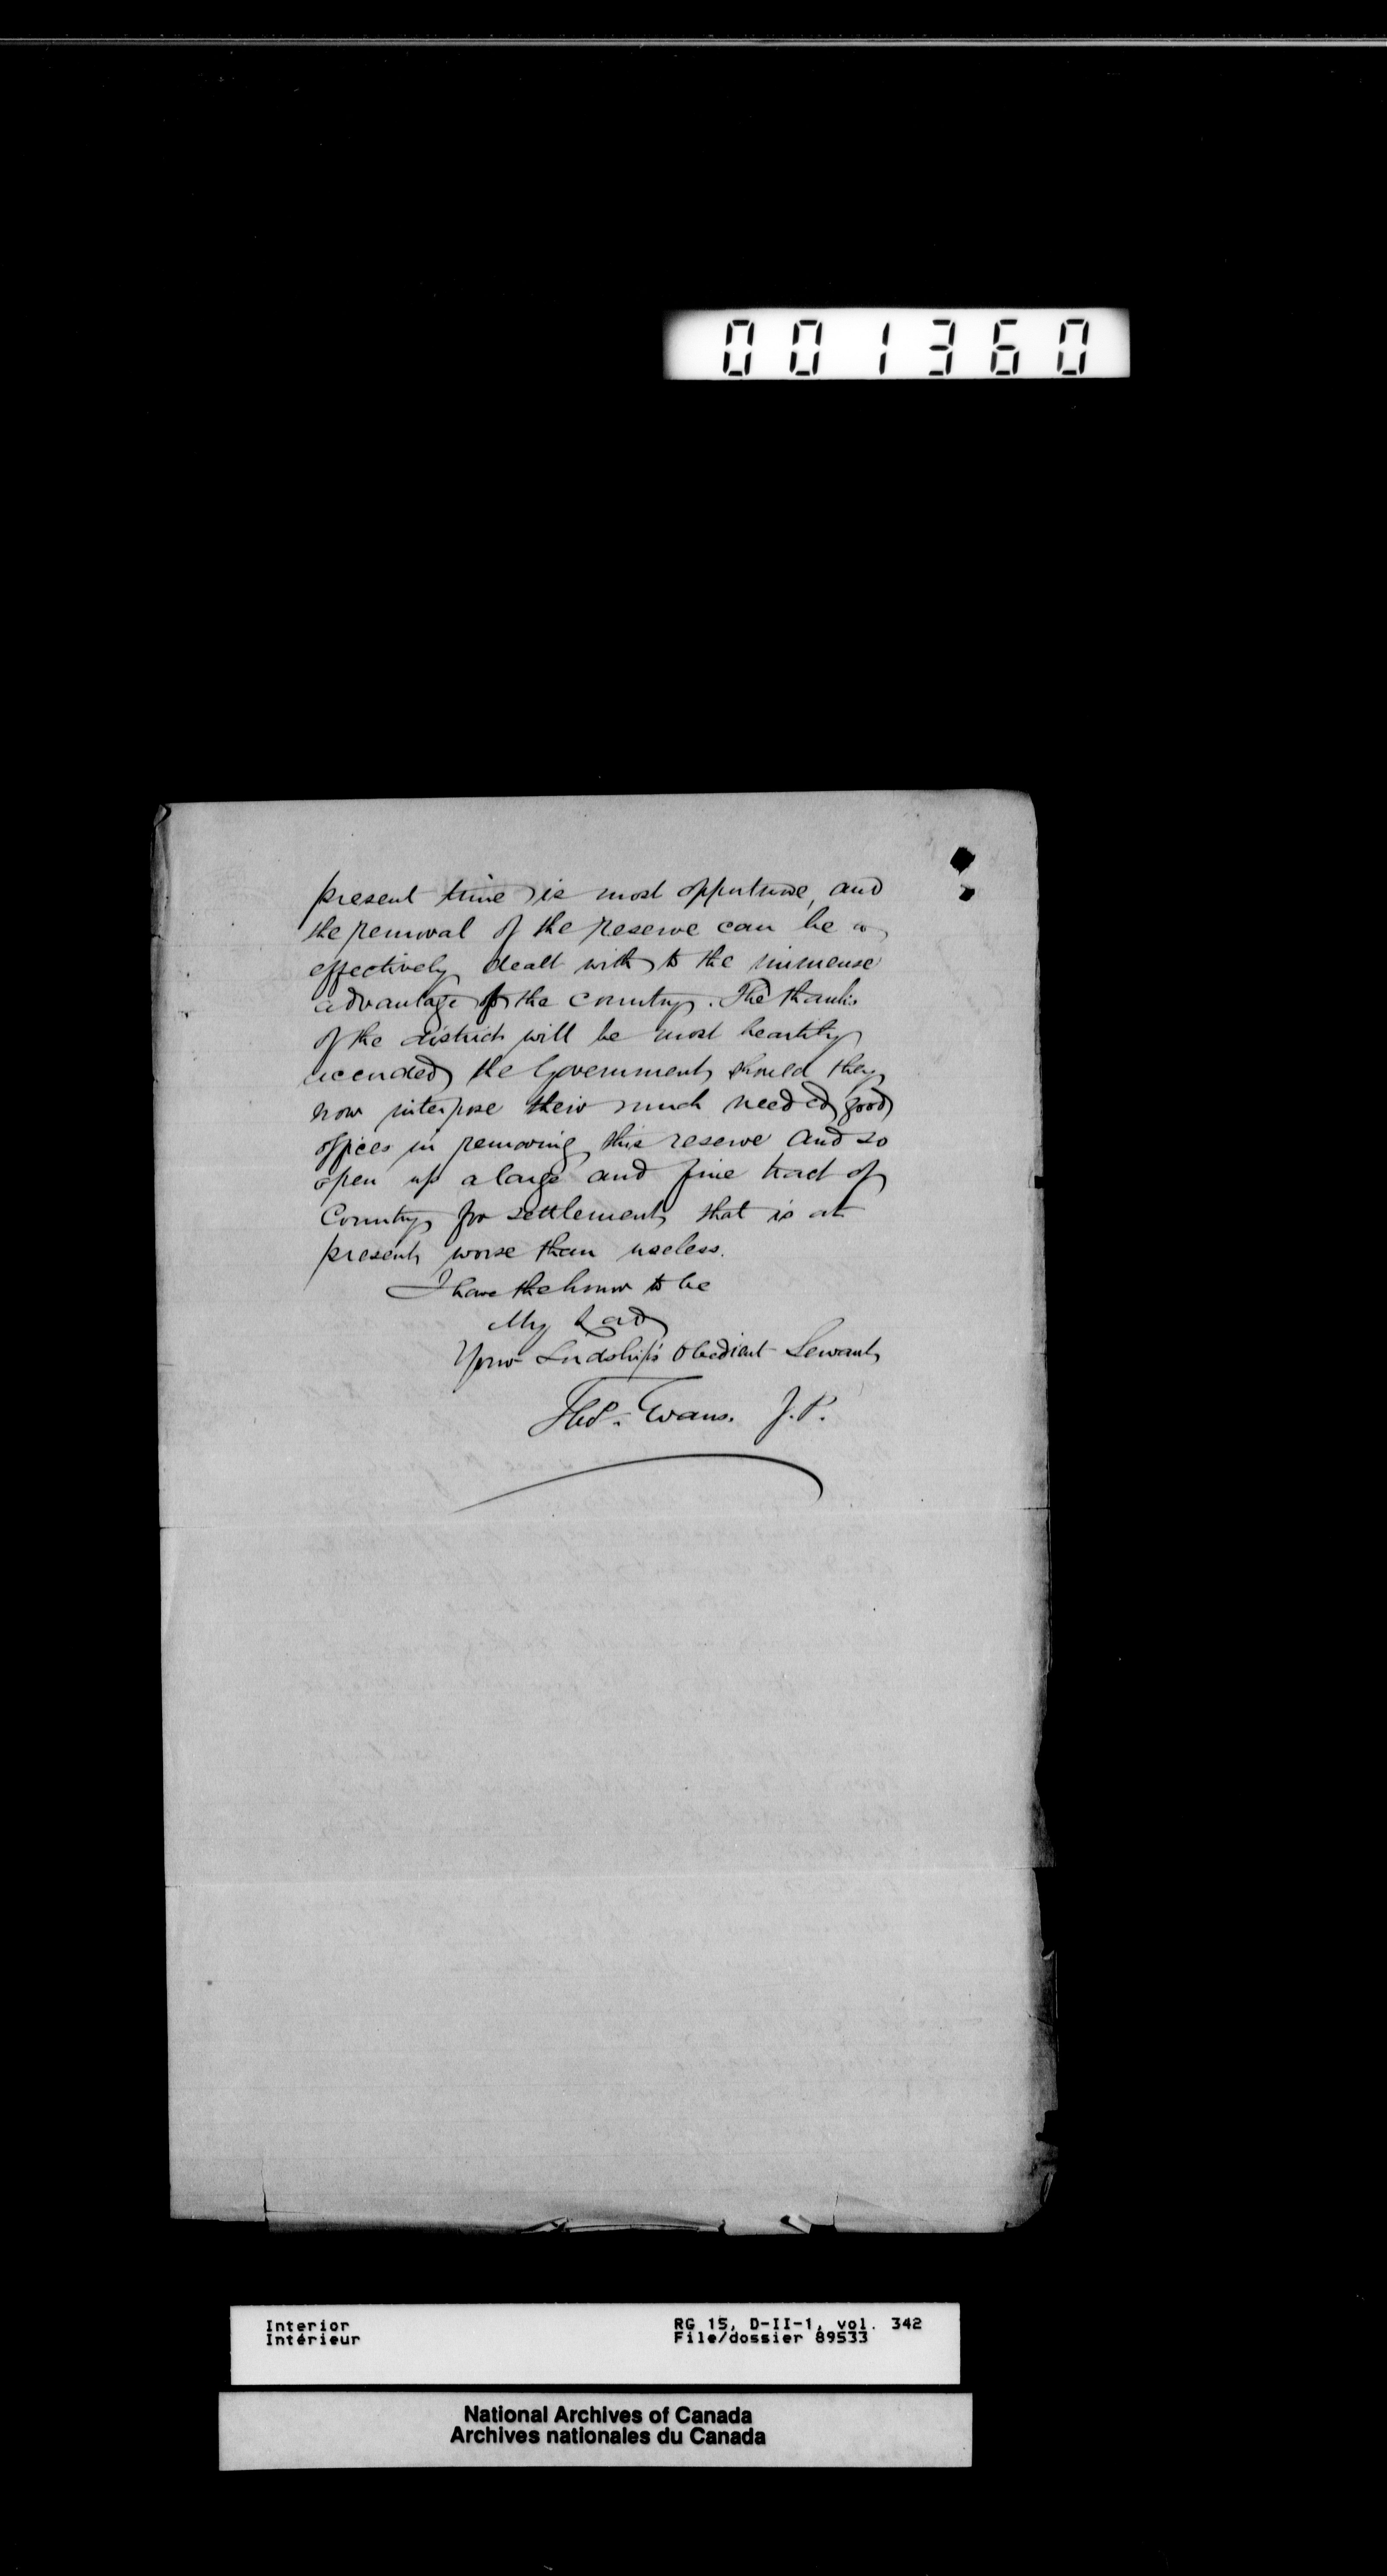 001360
present time is most opportune, and
the removal of the reserve can be
effectively dealt with to the immense
advantage of the country. The thanks
of the district will be most heartily
accended the Government should they
now interpose their much needed good
offices in removing this reserve and so
open up a large and fine tract of
Country for settlement that is at
present worse than useless.
I have the honor to be
My Lord
Your Lordship's Obedient Servant
Thos. Evans. J.P.
Interior RG 15, D-II-1, vol. 342
Intérieur File/dossier 89533
National Archives of Canada
Archives nationales du Canada